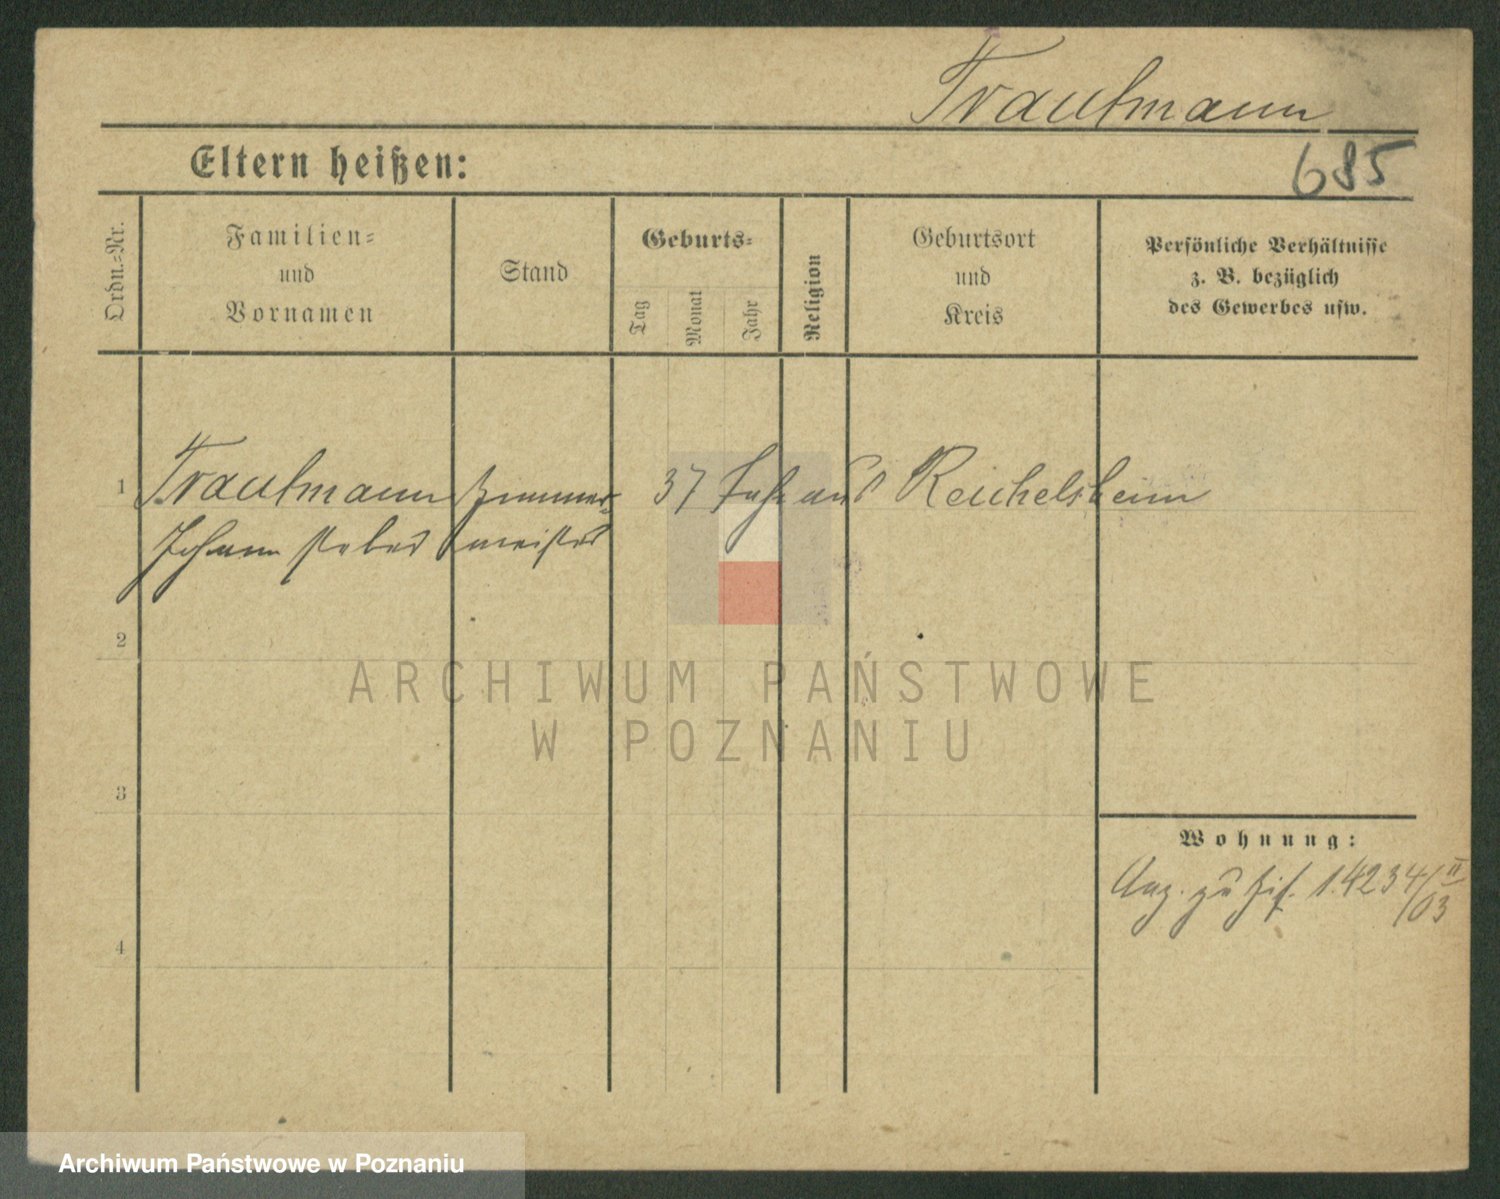 Trautmann
685
Eltern heißen:
Ordn.-Nr.
Familien-
und
Vornamen
Stand
Geburts-
Tag
Monat
Jahr
Religion
Geburtsort
und
Kreis
Persönliche Verhältnisse
z. B. bezüglich
des Gewerbes usw.
1 Trautmann Zimmer- 37 Jahr aus Reichelsheim
Johann Peter meister
2
ARCHIWUM PAŃSTWOWE
W POZNANIU
3
Wohnung:
Anz. zu 1.4234/II
/03
4
Archiwum Państwowe w Poznaniu